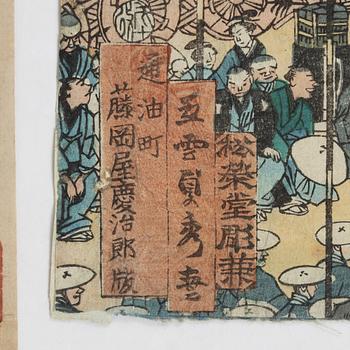 松栄堂彫兼
五雲貞秀画
通油町
藤岡屋慶治郎版